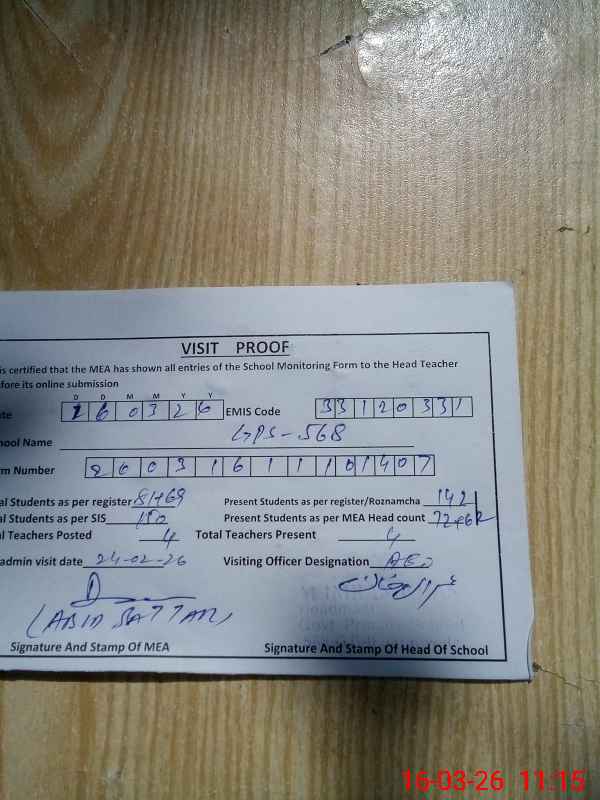 VISIT PROOF
is certified that the MEA has shown all entries of the School Monitoring Form to the Head Teacher
fore its online submission
D D M M Y Y
ate 16 03 26 EMIS Code 33120331
hool Name GPS-568
rm Number 26031611101407
al Students as per register 81+69 Present Students as per register/Roznamcha 142
al Students as per SIS 150 Present Students as per MEA Head count
al Teachers Posted 4 Total Teachers Present 4
admin visit date 24-02-26 Visiting Officer Designation AEO
(ABID SATTAR)
Signature And Stamp Of MEA Signature And Stamp Of Head Of School
16-03-26 11:15